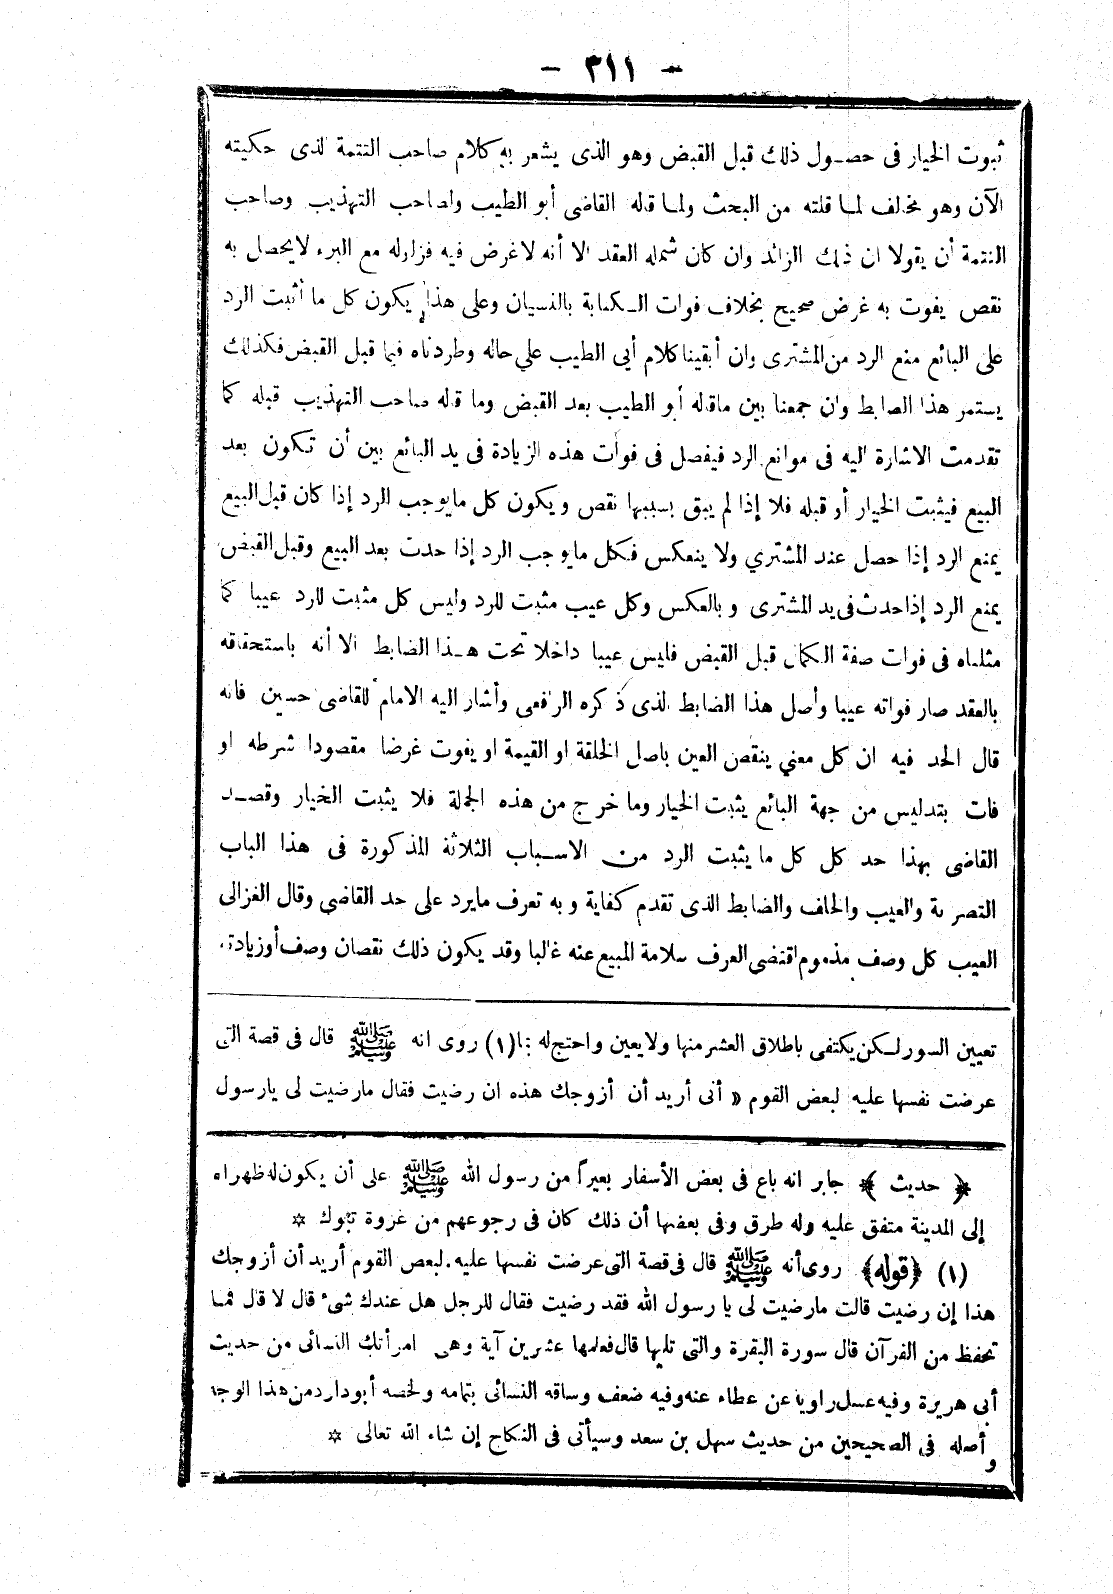 - ٣١١ -
ثبوت الخيار فى حصول ذلك قبل القبض وهو الذى يشعر به كلام صاحب التتمة الذى حكيته
الآن وهو مخالف لما قلته من البحث ولما قاله القاضى أبو الطيب ولصاحب التهذيب وصاحب
التتمة أن يقولا ان ذلك الزائد وان كان شمله العقد الا أنه لا غرض فيه فزواله مع البرء لا يحصل به
نقص يفوت به غرض صحيح بخلاف فوات الكتابة بالنسيان وعلى هذا يكون كل ما أثبت الرد
على البائع منع الرد من المشترى وان أبقينا كلام أبى الطيب علي حاله وطردناه فيما قبل القبض فكذلك
يستمر هذا الضابط وان جمعنا بين ماقاله أبو الطيب بعد القبض وما قاله صاحب التهذيب قبله كما
تقدمت الاشارة اليه فى موانع الرد فيفصل فى فوات هذه الزيادة فى يد البائع بين أن تكون بعد
البيع فيثبت الخيار أو قبله فلا إذا لم يبق بسببها نقص ويكون كل مايوجب الرد إذا كان قبل البيع
يمنع الرد إذا حصل عند المشتري ولا ينعكس فكل مايوجب الرد إذا حدث بعد البيع وقبل القبض
يمنع الرد إذا حدث فى يد المشترى وبالعكس وكل عيب مثبت للرد وليس كل مثبت للرد عيبا كما
مثلناه فى فوات صفة الكمال قبل القبض فليس عيبا داخلا تحت هذا الضابط الا أنه باستحقاقه
بالعقد صار فواته عيبا وأصل هذا الضابط الذى ذكره الرافعى وأشار اليه الامام للقاضى حسين فانه
قال الحد فيه ان كل معني ينقص العين باصل الخلقة او القيمة او يفوت غرضا مقصودا شرطه او
فات بتدليس من جهة البائع يثبت الخيار وما خرج من هذه الجملة فلا يثبت الخيار وقصد
القاضى بهذا حد كل كل ما يثبت الرد من الاسباب الثلاثة المذكورة فى هذا الباب
التصرية والعيب والخلف والضابط الذى تقدم كفاية وبه تعرف مايرد على حد القاضي وقال الغزالى
العيب كل وصف مذموم اقتضى العرف سلامة المبيع عنه غالبا وقد يكون ذلك نقصان وصف أو زيادة
تعيين السور لكن يكتفى باطلاق العشر منها ولا يعين واحتج له بما (١) روى انه ﷺ قال فى قصة التى
عرضت نفسها عليه لبعض القوم « أنى أريد أن أزوجك هذه ان رضيت فقال مارضيت لى يارسول
﴿ حديث ﴾ جابر انه باع فى بعض الأسفار بعيراً من رسول الله ﷺ على أن يكون له ظهراه
إلى المدينة متفق عليه وله طرق وفى بعضها أن ذلك كان فى رجوعهم من غزوة تبوك *
(١) ﴿قوله﴾ روى أنه ﷺ قال فى قصة التى عرضت نفسها عليه. لبعض القوم أريد أن أزوجك
هذا إن رضيت قالت مارضيت لى يا رسول الله فقد رضيت فقال للرجل هل عندك شىء قال لا قال فما
تحفظ من القرآن قال سورة البقرة والتى تليها قال فعلمها عشرين آية وهى امرأتك النسائى من حديث
أبى هريرة وفيه عسل راويا عن عطاء عنه وفيه ضعف وساقه النسائى بتمامه ولخصه أبوداود من هذا الوجه
وأصله فى الصحيحين من حديث سهل بن سعد وسيأتى فى النكاح إن شاء الله تعالى *